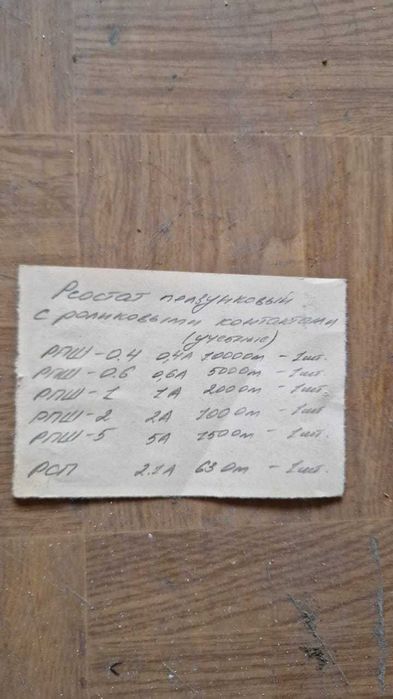 Реостат ползунковый
с роликовыми контактами
(учебные)
РПШ-0.4 0,4А 1000 Ом - 1 шт.
РПШ-0.6 0,6А 500 Ом - 1 шт.
РПШ-1 1А 200 Ом - 1 шт.
РПШ-2 2А 100 Ом - 1 шт
РПШ-5 5А 150 Ом - 1 шт.
РСП 2.1А 63 Ом - 1 шт.